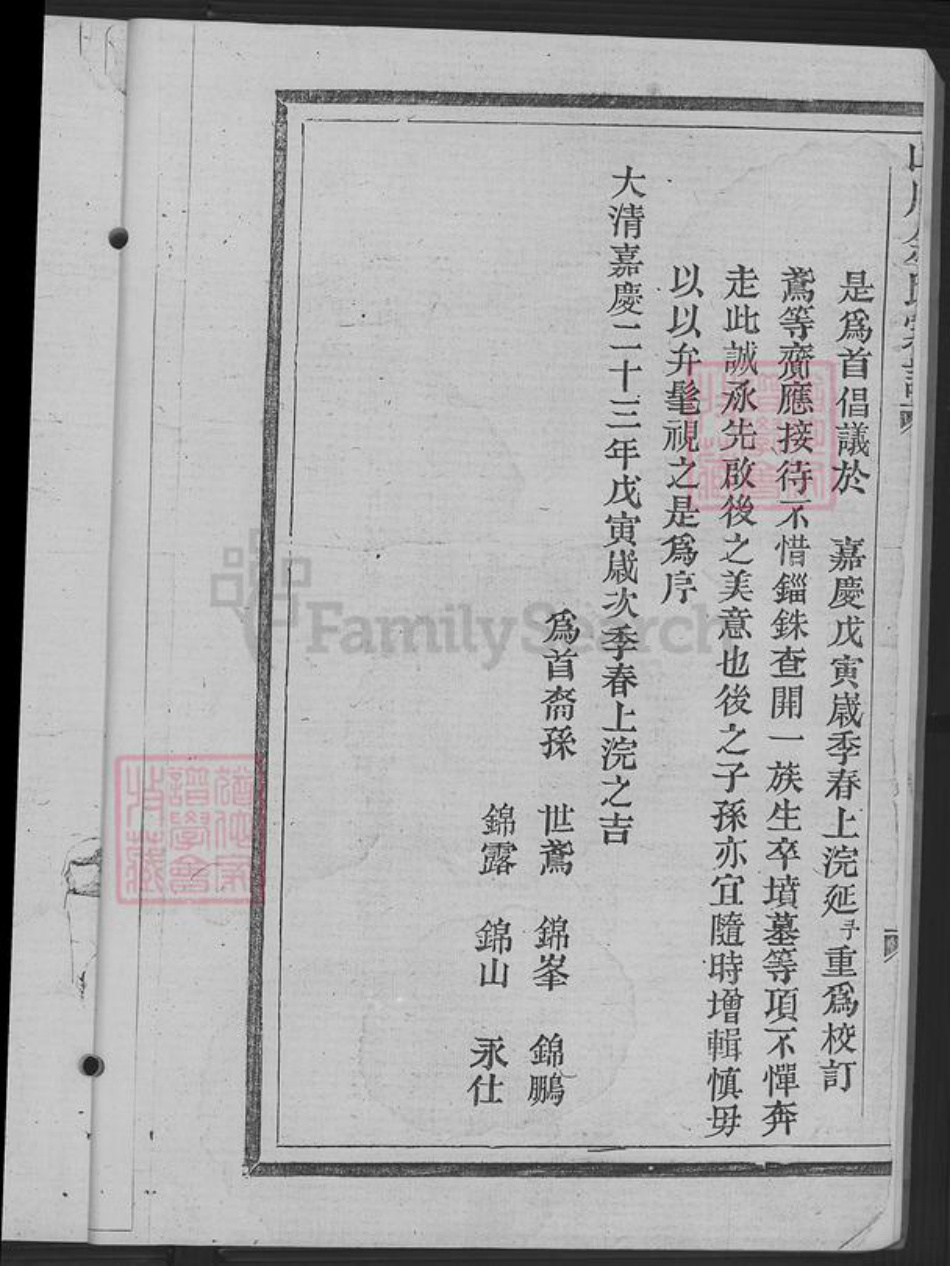 是爲首倡議於　嘉慶戊寅歲季春上浣延予重爲校訂
鳶等齎應接待不惜錙銖查開一族生卒墳墓等項不憚奔
走此誠承先啟後之美意也後之子孫亦宜隨時增輯慎毋
以以弁髦視之是爲序
大清嘉慶二十三年戊寅歲次季春上浣之吉
爲首裔孫　世鳶　錦峯　錦鵬
錦露　錦山　永仕
FamilySearch
譜學會
收藏